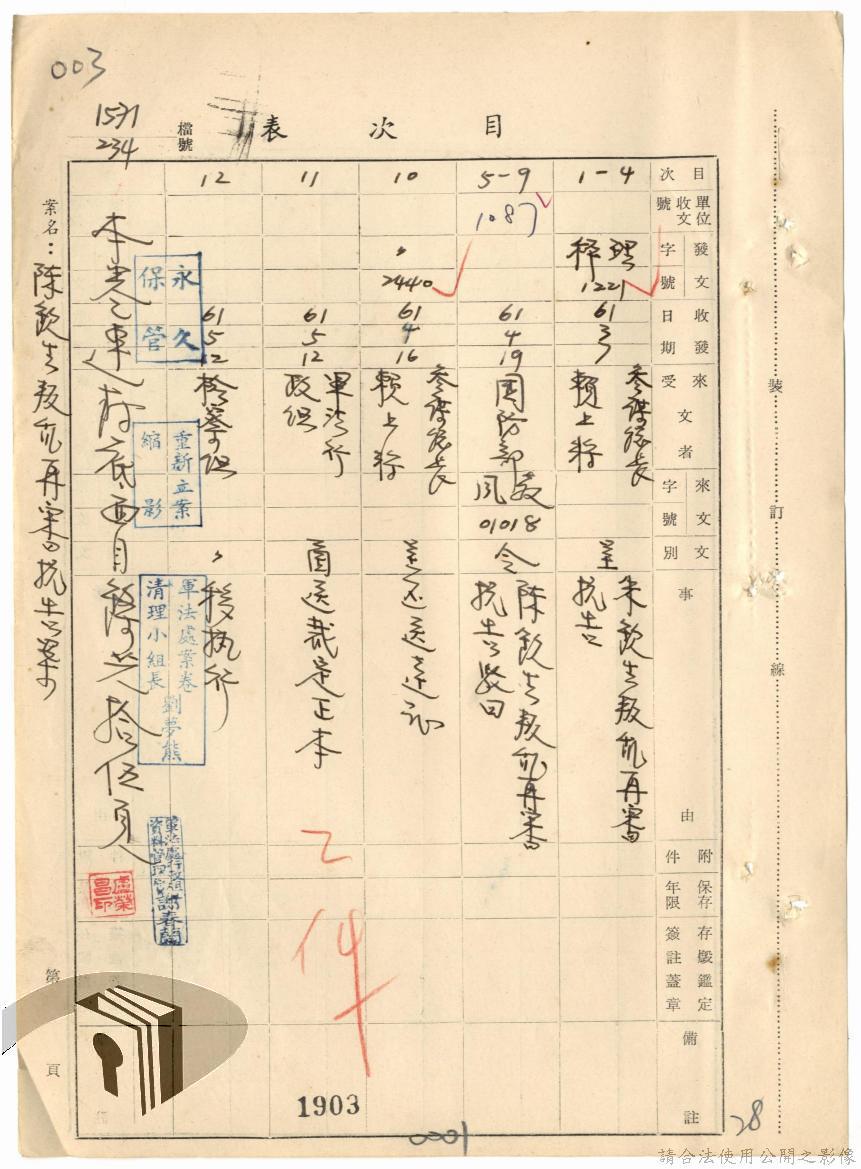 003
1571
234
檔號
目次表
目次
單位收文號
發文字號
收發日期
來受文者
來文字號
文別
事由
附件
保存年限
存燬鑑定簽註蓋章
備註
1-4
1221
61
3
7
參謀總長
賴上將
呈
朱欽生叛亂再審
抗告
5-9
1087
61
4
19
國防部
01018
令
陳欽生叛亂再審
抗告駁回
10
〃
2440
61
4
16
參謀總長
賴上將
呈
送達証
11
61
5
12
軍法行
政組
函
送裁定正本
12
61
5
12
檢察組
〃
移執行
永久保管
重新立案縮影
軍法處案卷
清理小組長劉夢熊
謝春蘭
盧榮昌印
案名：陳欽生叛亂再審抗告案
裝訂線
第 頁
1903
0001
28
請合法使用公開之影像